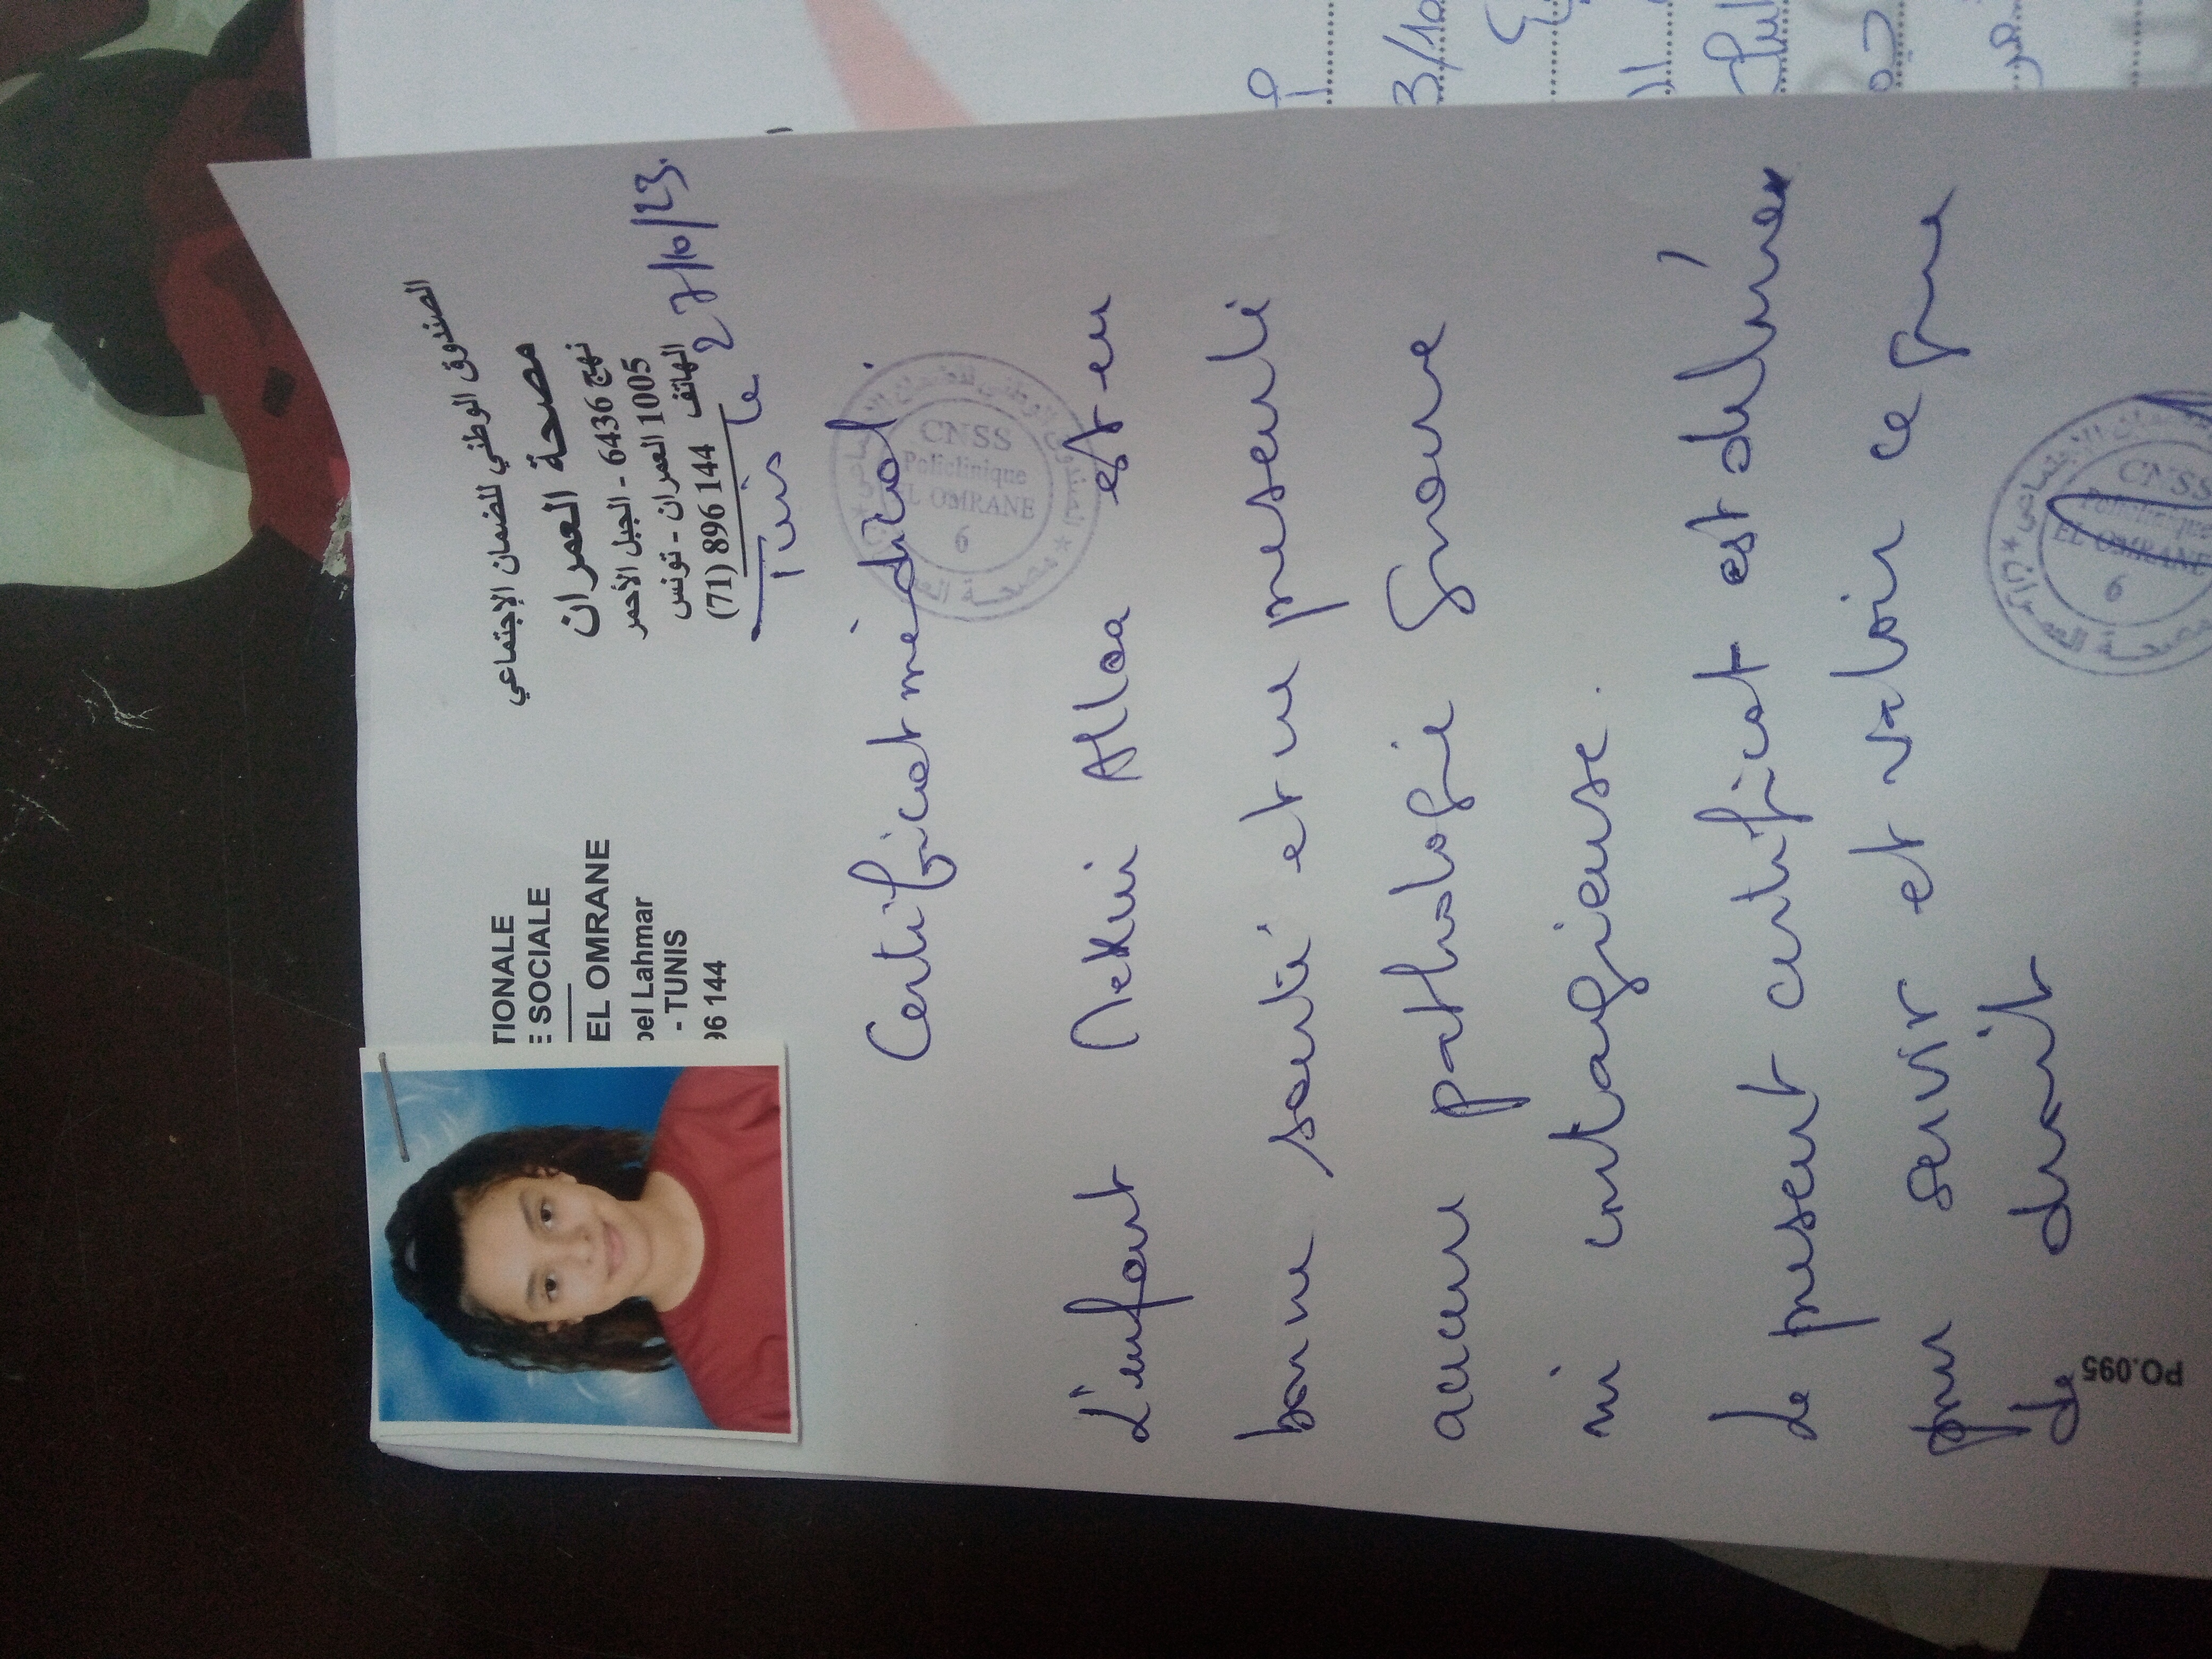 TIONALE
E SOCIALE
EL OMRANE
bel Lahmar
- TUNIS
96 144
الصندوق الوطني للضمان الإجتماعي
مصحة العمران
نهج 6436 - الجبل الأحمر
1005 العمران - تونس
الهاتف 896 144 (71)
Tunis le 27/10/23.
Certificat médical
CNSS
Policlinique
EL OMRANE
6
L'enfant Mekni Allaa est en
bonne santé et ne présente
aucune pathologie grave
ni contagieuse.
Le present certificat est délivrée
pour servir et valoir ce que
de droit
CNSS
Policlinique
EL OMRANE
6
PO.095
3/10